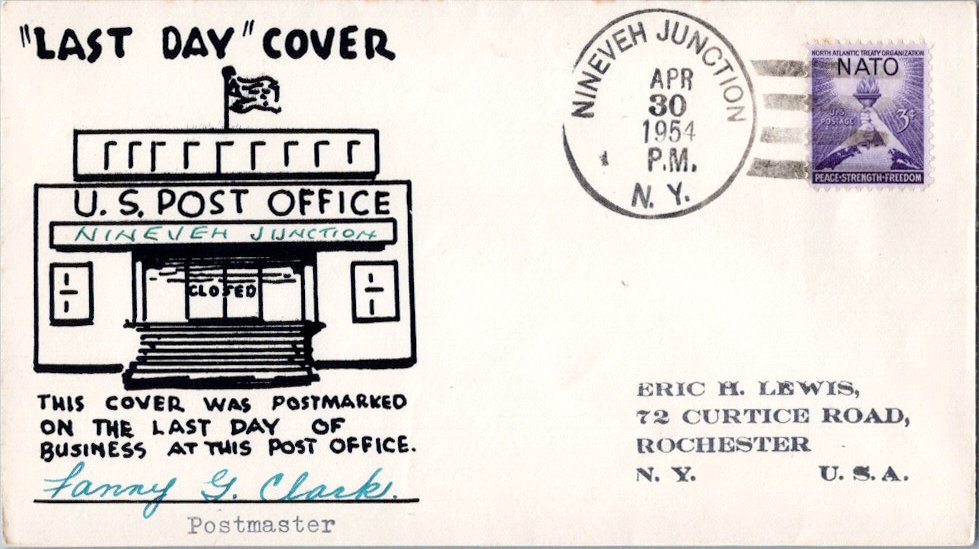 "LAST DAY" COVER
U.S. POST OFFICE
NINEVEH JUNCTION
CLOSED
THIS COVER WAS POSTMARKED
ON THE LAST DAY OF
BUSINESS AT THIS POST OFFICE.
Fanny G. Clark.
Postmaster
NINEVEH JUNCTION
APR
30
1954
P.M.
N. Y.
NORTH ATLANTIC TREATY ORGANIZATION
NATO
U.S.
POSTAGE
3¢
PEACE·STRENGTH·FREEDOM
ERIC H. LEWIS,
72 CURTICE ROAD,
ROCHESTER
N. Y. U. S. A.